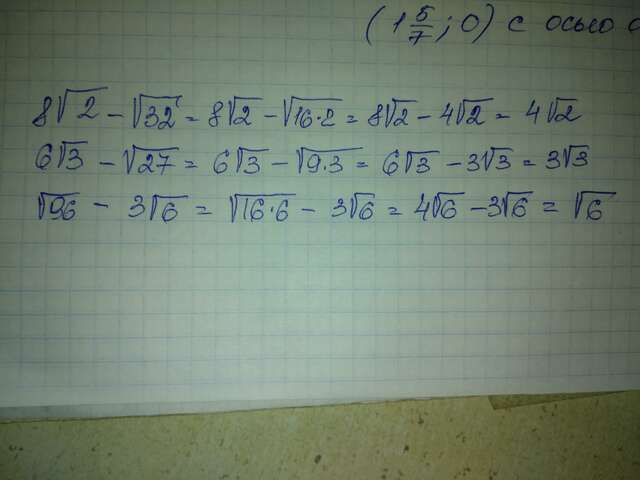 (1 5/7; 0) с осью
8√2 - √32 = 8√2 - √16·2 = 8√2 - 4√2 = 4√2
6√3 - √27 = 6√3 - √9·3 = 6√3 - 3√3 = 3√3
√96 - 3√6 = √16·6 - 3√6 = 4√6 - 3√6 = √6